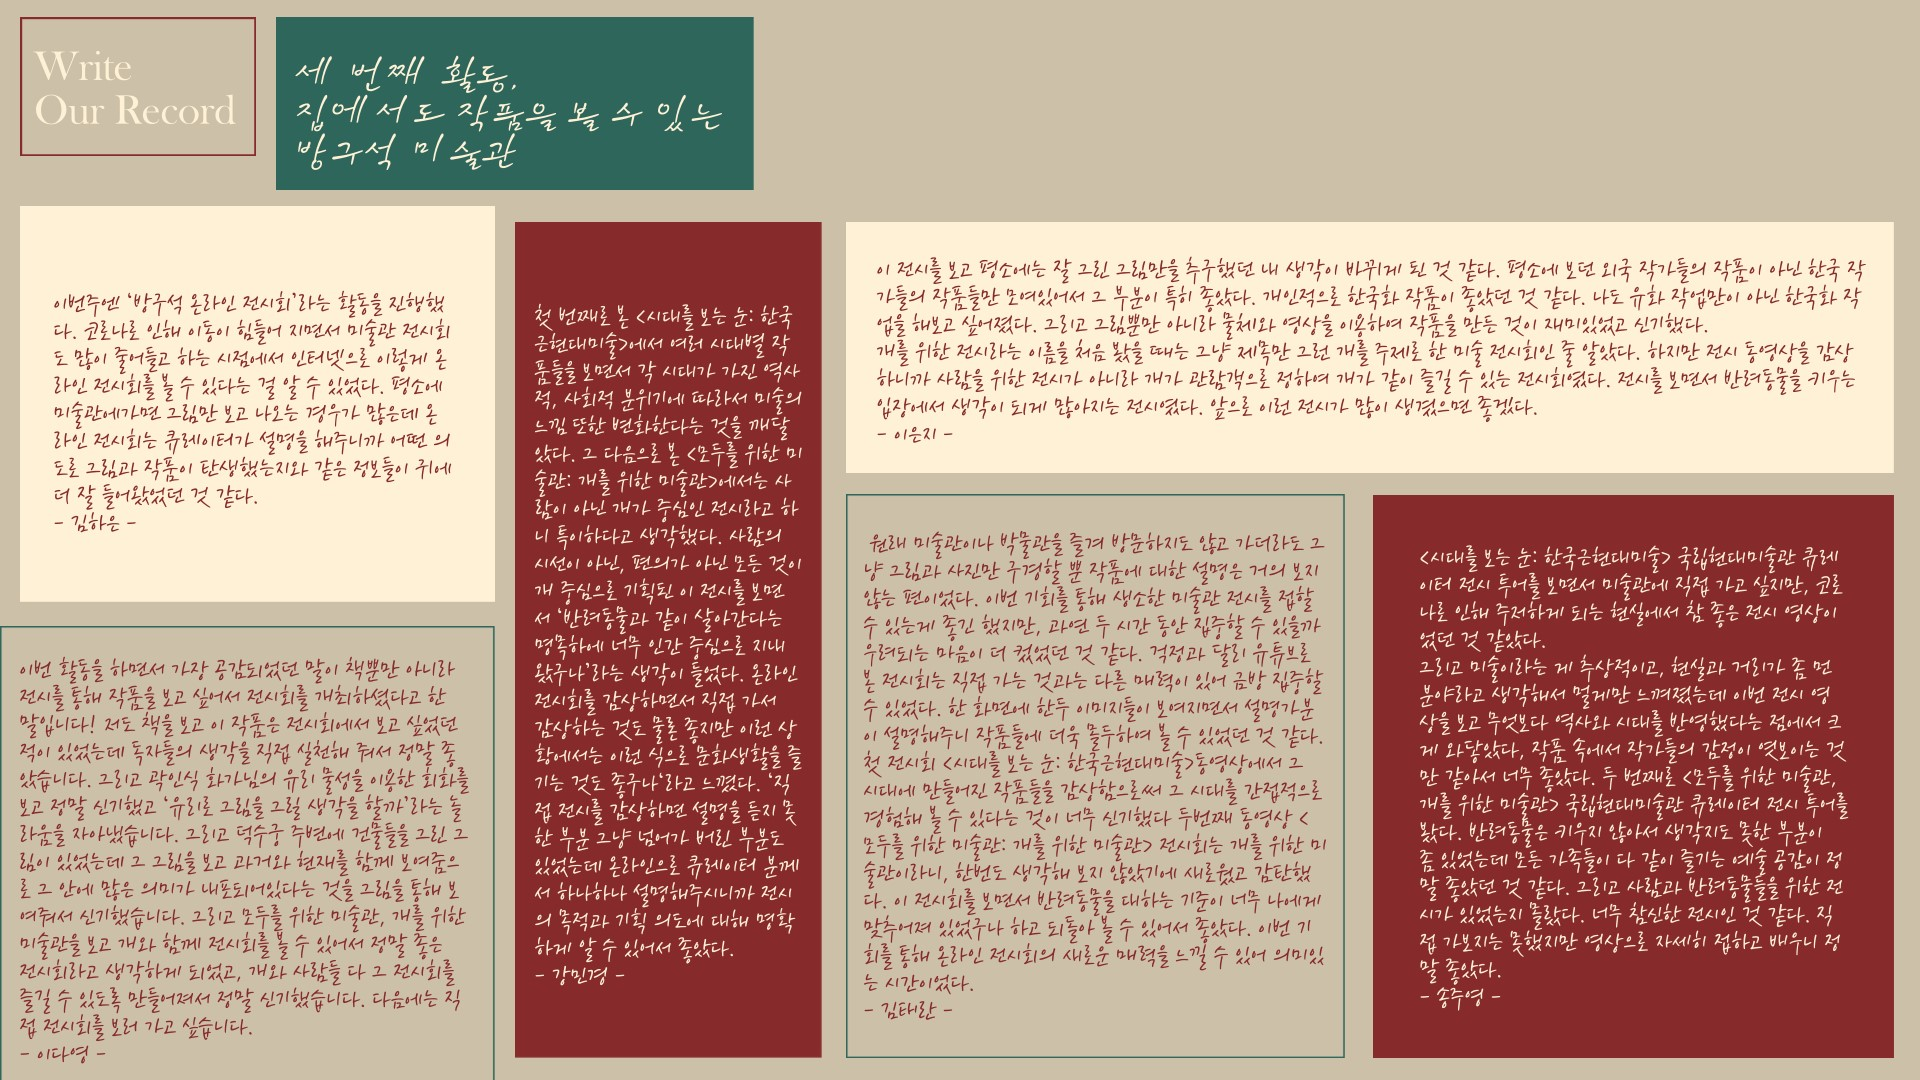 Write
Our Record
세 번째 활동,
집에서도 작품을 볼 수 있는
방구석 미술관
이번주엔 '방구석 온라인 전시회'라는 활동을 진행했
다. 코로나로 인해 이동이 힘들어 지면서 미술관 전시회
도 많이 줄어들고 하는 시점에서 인터넷으로 이렇게 온
라인 전시회를 볼 수 있다는 걸 알 수 있었다. 평소에
미술관에가면 그림만 보고 나오는 경우가 많은데 온
라인 전시회는 큐레이터가 설명을 해주니까 어떤 의
도로 그림과 작품이 탄생했는지와 같은 정보들이 귀에
더 잘 들어왔었던 것 같다.
- 김하은 -
이번 활동을 하면서 가장 공감되었던 말이 책뿐만 아니라
전시를 통해 작품을 보고 싶어서 전시회를 개최하셨다고 한
말입니다! 저도 책을 보고 이 작품은 전시회에서 보고 싶었던
적이 있었는데 독자들의 생각을 직접 실천해 줘서 정말 좋
았습니다. 그리고 곽인식 화가님의 유리 물성을 이용한 회화를
보고 정말 신기했고 '유리로 그림을 그릴 생각을 할까'라는 놀
라움을 자아냈습니다. 그리고 덕수궁 주변에 건물들을 그린 그
림이 있었는데 그 그림을 보고 과거와 현재를 함께 보여줌으
로 그 안에 많은 의미가 내포되어있다는 것을 그림을 통해 보
여줘서 신기했습니다. 그리고 모두를 위한 미술관, 개를 위한
미술관을 보고 개와 함께 전시회를 볼 수 있어서 정말 좋은
전시회라고 생각하게 되었고, 개와 사람들 다 그 전시회를
즐길 수 있도록 만들어져서 정말 신기했습니다. 다음에는 직
접 전시회를 보러 가고 싶습니다.
- 이다영 -
첫 번째로 본 <시대를 보는 눈: 한국
근현대미술>에서 여러 시대별 작
품들을 보면서 각 시대가 가진 역사
적, 사회적 분위기에 따라서 미술의
느낌 또한 변화한다는 것을 깨달
았다. 그 다음으로 본 <모두를 위한 미
술관: 개를 위한 미술관>에서는 사
람이 아닌 개가 중심인 전시라고 하
니 특이하다고 생각했다. 사람의
시선이 아닌, 편의가 아닌 모든 것이
개 중심으로 기획된 이 전시를 보면
서 '반려동물과 같이 살아간다는
명목하에 너무 인간 중심으로 지내
왔구나'라는 생각이 들었다. 온라인
전시회를 감상하면서 직접 가서
감상하는 것도 물론 좋지만 이런 상
황에서는 이런 식으로 문화생활을 즐
기는 것도 좋구나'라고 느꼈다. '직
접 전시를 감상하면 설명을 듣지 못
한 부분 그냥 넘어가 버린 부분도
있었는데 온라인으로 큐레이터 분께
서 하나하나 설명해주시니까 전시
의 목적과 기획 의도에 대해 명확
하게 알 수 있어서 좋았다.
- 강민경 -
이 전시를 보고 평소에는 잘 그린 그림만을 추구했던 내 생각이 바뀌게 된 것 같다. 평소에 보던 외국 작가들의 작품이 아닌 한국 작
가들의 작품들만 모여있어서 그 부분이 특히 좋았다. 개인적으로 한국화 작품이 좋았던 것 같다. 나도 유화 작업만이 아닌 한국화 작
업을 해보고 싶어졌다. 그리고 그림뿐만 아니라 물체와 영상을 이용하여 작품을 만든 것이 재미있었고 신기했다.
개를 위한 전시라는 이름을 처음 봤을 때는 그냥 제목만 그런 개를 주제로 한 미술 전시회인 줄 알았다. 하지만 전시 동영상을 감상
하니까 사람을 위한 전시가 아니라 개가 관람객으로 정하여 개가 같이 즐길 수 있는 전시회였다. 전시를 보면서 반려동물을 키우는
입장에서 생각이 되게 많아지는 전시였다. 앞으로 이런 전시가 많이 생겼으면 좋겠다.
- 이은지 -
원래 미술관이나 박물관을 즐겨 방문하지도 않고 가더라도 그
냥 그림과 사진만 구경할 뿐 작품에 대한 설명은 거의 보지
않는 편이었다. 이번 기회를 통해 생소한 미술관 전시를 접할
수 있는게 좋긴 했지만, 과연 두 시간 동안 집중할 수 있을까
우려되는 마음이 더 컸었던 것 같다. 걱정과 달리 유튜브로
본 전시회는 직접 가는 것과는 다른 매력이 있어 금방 집중할
수 있었다. 한 화면에 한두 이미지들이 보여지면서 설명가분
이 설명해주니 작품들에 더욱 몰두하여 볼 수 있었던 것 같다.
첫 전시회 <시대를 보는 눈: 한국근현대미술>동영상에서 그
시대에 만들어진 작품들을 감상함으로써 그 시대를 간접적으로
경험해 볼 수 있다는 것이 너무 신기했다 두번째 동영상 <
모두를 위한 미술관: 개를 위한 미술관> 전시회는 개를 위한 미
술관이라니, 한번도 생각해 보지 않았기에 새로웠고 감탄했
다. 이 전시회를 보면서 반려동물을 대하는 기준이 너무 나에게
맞추어져 있었구나 하고 되돌아 볼 수 있어서 좋았다. 이번 기
회를 통해 온라인 전시회의 새로운 매력을 느낄 수 있어 의미있
는 시간이었다.
- 김태란 -
<시대를 보는 눈: 한국근현대미술> 국립현대미술관 큐레
이터 전시 투어를 보면서 미술관에 직접 가고 싶지만, 코로
나로 인해 주저하게 되는 현실에서 참 좋은 전시 영상이
었던 것 같았다.
그리고 미술이라는 게 추상적이고, 현실과 거리가 좀 먼
분야라고 생각해서 멀게만 느껴졌는데 이번 전시 영
상을 보고 무엇보다 역사와 시대를 반영했다는 점에서 크
게 와닿았다, 작품 속에서 작가들의 감정이 엿보이는 것
만 같아서 너무 좋았다. 두 번째로 <모두를 위한 미술관,
개를 위한 미술관> 국립현대미술관 큐레이터 전시 투어를
봤다. 반려동물은 키우지 않아서 생각지도 못한 부분이
좀 있었는데 모든 가족들이 다 같이 즐기는 예술 공감이 정
말 좋았던 것 같다. 그리고 사람과 반려동물들을 위한 전
시가 있었는지 몰랐다. 너무 참신한 전시인 것 같다. 직
접 가보지는 못했지만 영상으로 자세히 접하고 배우니 정
말 좋았다.
- 송주영 -